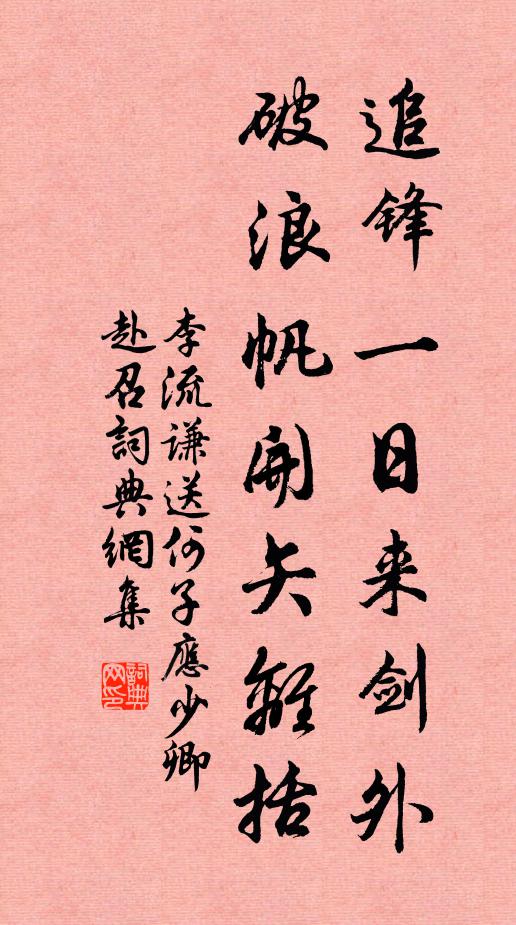 追锋一日来剑外
破浪帆开矢離括
李流谦送何子應少卿
赴召詞典網集
詞典网印